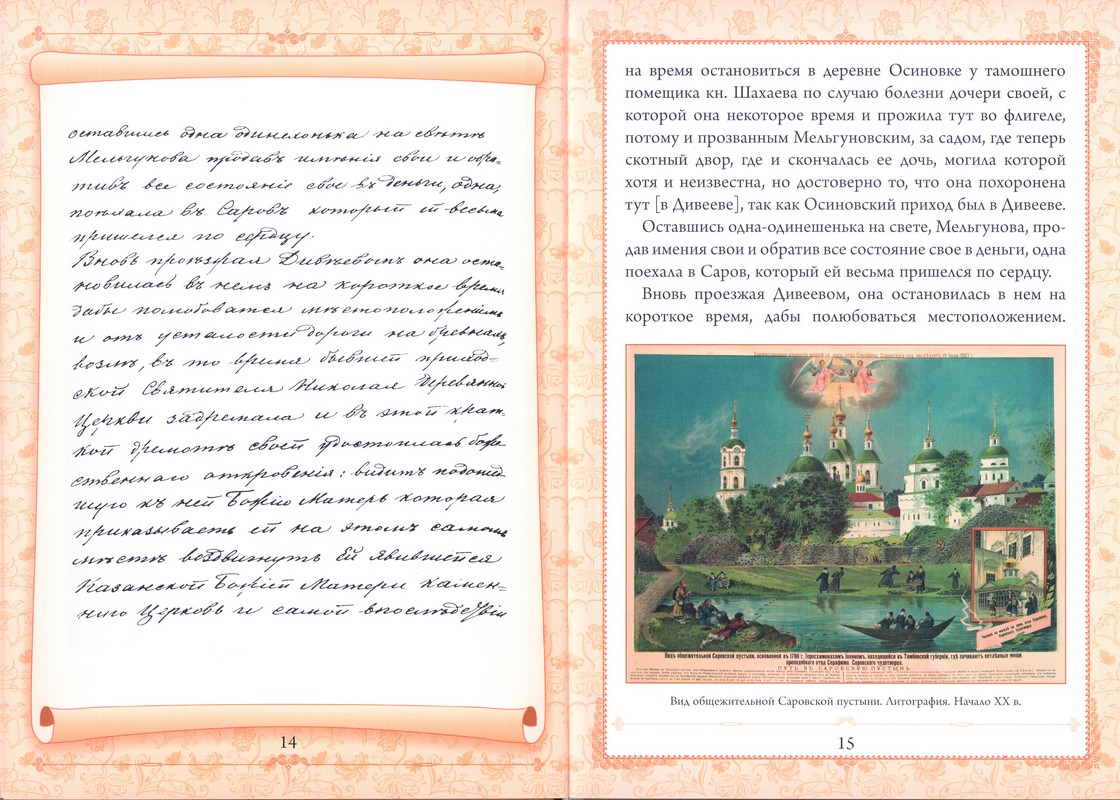 оставшись одна одинехонька на свѣтѣ
Мельгунова продавъ имѣнія свои и обра=
тивъ все состояніе свое въ деньги, одна,
поѣхала въ Саровъ который ей весьма
пришелся по сердцу.
Вновь проѣзжая Дивѣевомъ она оста=
новилась въ немъ на короткое время
дабы полюбоватся мѣстоположеніемъ
и отъ усталости дороги на бревнахъ
возлѣ, въ то время бывшей приход=
ской Святителя Николая деревянной
Церкви задремала и въ этой крат=
кой дремотѣ своей удостоилась боже
ственнаго откровенія: видитъ подошед
шую къ ней Божію Матерь которая
приказываетъ ей на этомъ самомъ
мѣстѣ воздвигнуть Ей явившейся
Казанской Божіей Матери камен=
ную Церковь и самой впослѣдствіи
14
на время остановиться в деревне Осиновке у тамошнего
помещика кн. Шахаева по случаю болезни дочери своей, с
которой она некоторое время и прожила тут во флигеле,
потому и прозванным Мельгуновским, за садом, где теперь
скотный двор, где и скончалась ее дочь, могила которой
хотя и неизвестна, но достоверно то, что она похоронена
тут [в Дивееве], так как Осиновский приход был в Дивееве.
Оставшись одна-одинешенька на свете, Мельгунова, про-
дав имения свои и обратив все состояние свое в деньги, одна
поехала в Саров, который ей весьма пришелся по сердцу.
Вновь проезжая Дивеевом, она остановилась в нем на
короткое время, дабы полюбоваться местоположением.
Видъ общежительной Саровской пустыни, основанной въ 1706 г. Іеросхимонахомъ Іоанномъ, находящейся въ Тамбовской губерніи, гдѣ почиваютъ нетлѣнныя мощи
преподобнаго отца Серафима Саровскаго чудотворца.
ПУТЬ ВЪ САРОВСКУЮ ПУСТЫНЬ.
Вид общежительной Саровской пустыни. Литография. Начало XX в.
15